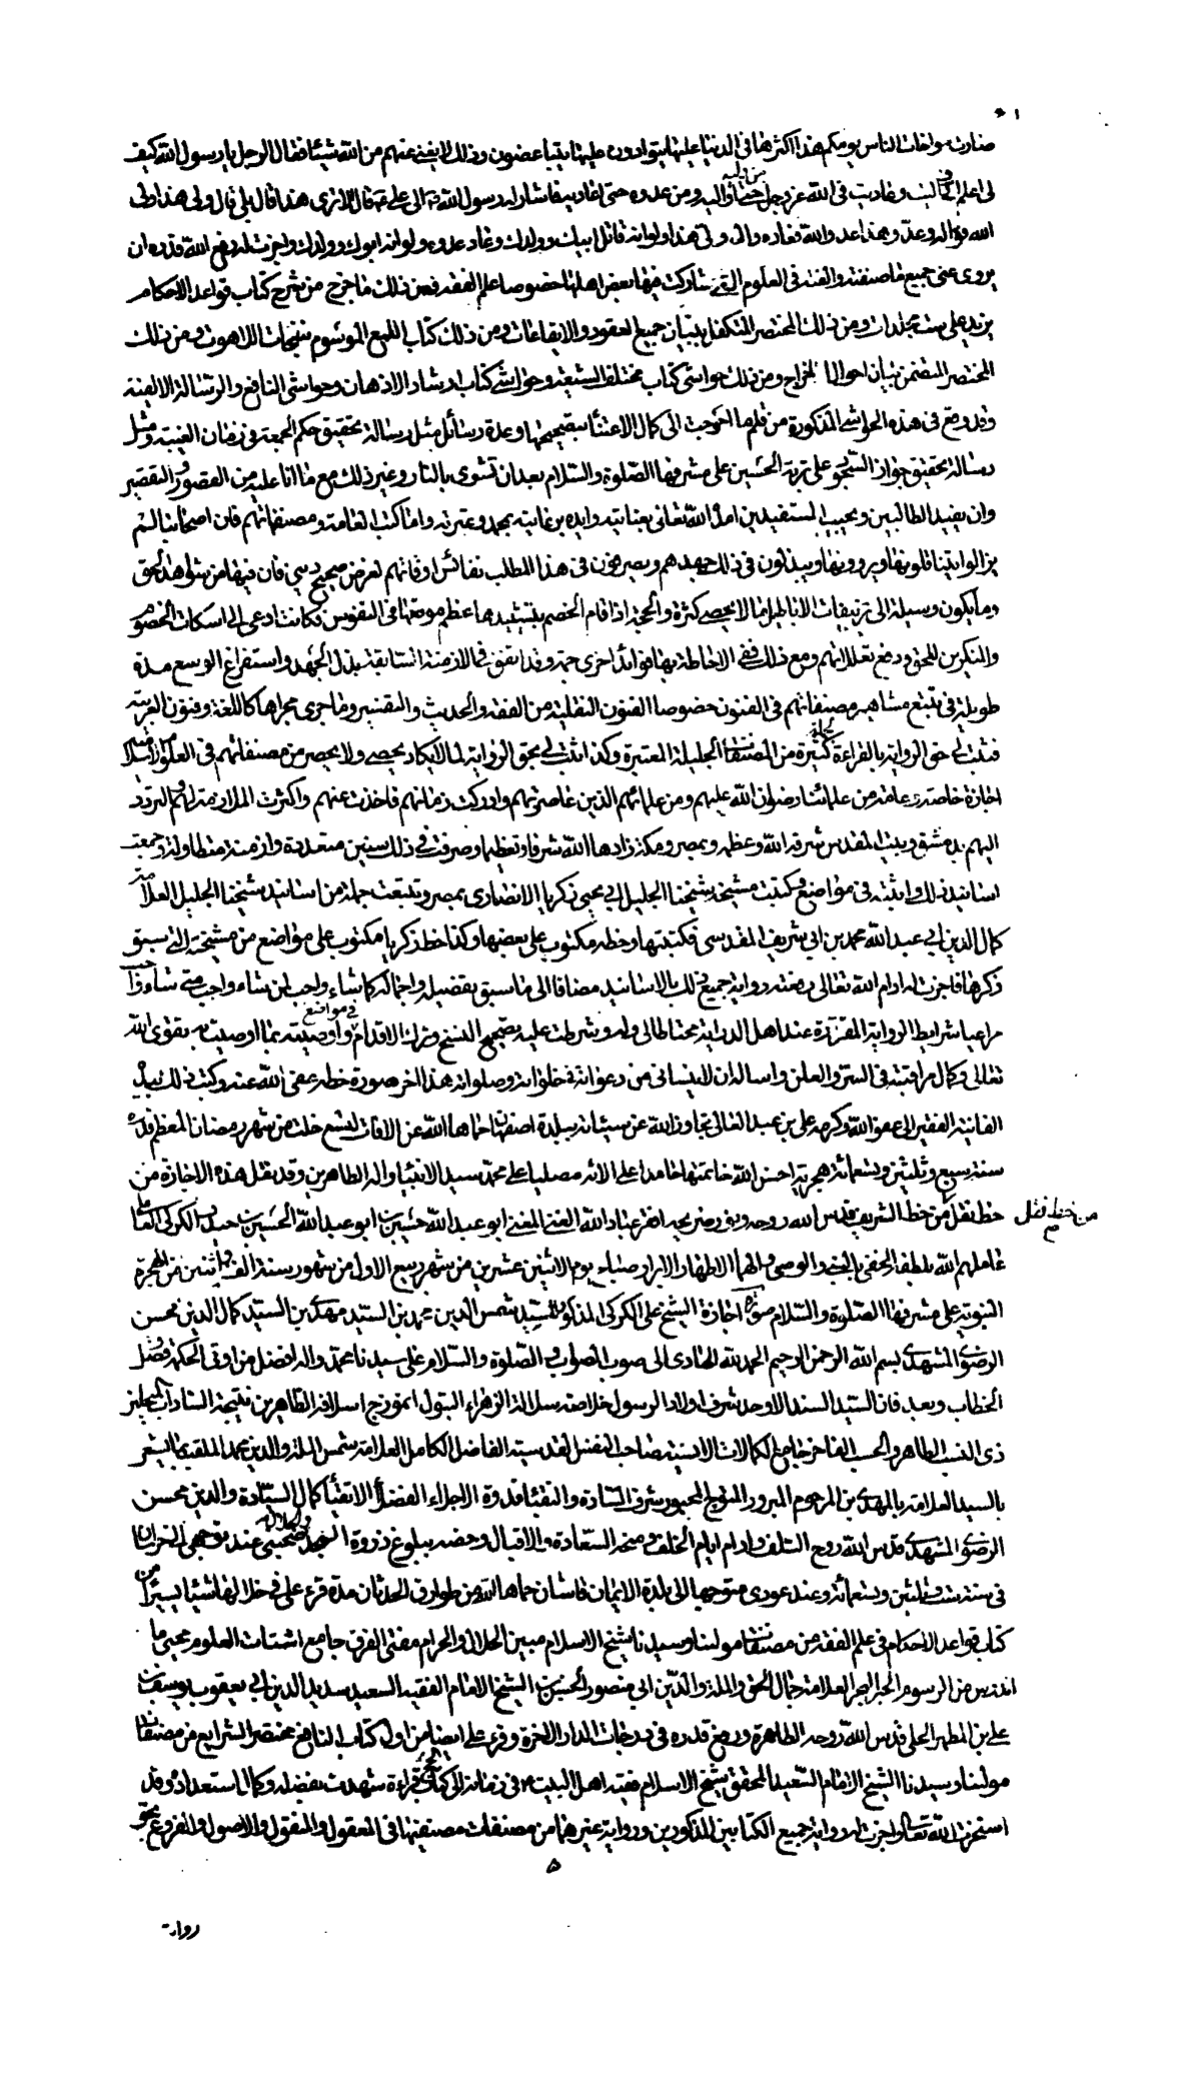 صارت مواخات الناس يومكم هذا اكثرها في الدنيا عليها يتوادون وعليها يتباغضون وذلك لا يغني عنهم من الله شيئا فقال الرجل يا رسول الله كيف
لي اعلم اني قد واليت وعاديت في الله عز وجل ومن ولي الله حتى اواليه ومن عدوه حتى اعاديه فاشار له رسول الله الى علي فقال الا ترى هذا قال بلى قال ولي هذا ولي
الله فواله وعدو هذا عدو الله فعاده وال ولي هذا ولو انه قاتل ابيك وولدك وعاد عدوه ولو انه ابوك وولدك واجزت له رفع الله قدره ان
يروى عني جميع ما صنفته والفته في العلوم التي شاركت فيها بعض اهلها خصوصا علم الفقه فمن ذلك ما خرج من شرح كتاب قواعد الاحكام
يزيد على ست مجلدات ومن ذلك المختصر المتكفل ببيان جميع العقود والايقاعات ومن ذلك كتاب اللمع الموسوم بنفحات اللاهوت ومن ذلك
المختصر المتضمن بيان احوال الخراج ومن ذلك حواشي كتاب مختلف الشيعة وحواشي كتاب ارشاد الاذهان وحواشي النافع والرسالة الالفية
وقد وقع في هذه الحواشي المذكورة من قلم ما احوجت الى كمال الاعتناء بتصحيحها وعدة رسائل مثل رسالة تحقيق حكم الجمعة في زمان الغيبة ومثل
رسالة تحقيق جواز السجود على تربة الحسين على مشرفها الصلوة والسلام بعد ان تشوى بالنار وغير ذلك مع ما انا عليه من القصور والتقصير
وان يفيد الطالبين ويجيب المستفيدين امده الله تعالى بعنايته وايده برعايته بمحمد وعترته واما كتب العامة ومصنفاتهم فان اصحابنا لم
يزالوا ينقلونها ويروونها ويبذلون في ذلك جهدهم ويصرفون في هذا المطلب نفائس اوقاتهم لغرض صحيح ديني فان فيها من شواهد الحق
وما يكون وسيلة الى تزييفات الاباطيل ما لا يحصى كثرة والحجة اذا قام الخصم بتشييدها عظم موقعها في النفوس فكانت ادعى الى اسكات الخصوم
والمنكرين للحق ودفع تعللاتهم ومع ذلك ففي الاحاطة بها فوائد اخرى جمة وقد اتفق في الازمنة السابقة بذل الجهد واستفراغ الوسع مدة
طويلة في تتبع مشاهير مصنفاتهم في الفنون خصوصا الفنون النقلية من الفقه والحديث والتفسير وما جرى مجراها كاللغة وفنون العربية
فثبت لي حق الرواية بالقراءة لجملة كثيرة من المصنفات الجليلة المعتبرة وكذا ثبت لي حق الرواية لما لا يكاد يحصى ولا يحصر من مصنفاتهم في العلوم الاسلامية
اجازة خاصة وعامة من علمائنا رضوان الله عليهم ومن علمائهم الذين عاصرتهم وادركت زمانهم فاخذت عنهم واكثرت الملازمة لهم والتردد
اليهم بدمشق وبيت المقدس شرفه الله وعظمه وبمصر ومكة زادها الله شرفا وتعظيما وصرفت في ذلك سنين متعددة وازمنة متطاولة وجمعت
اسانيد ذلك واثبته في مواضع وكتبت مشيخة شيخنا الجليل ابي يحيى زكريا الانصاري بمصر وتتبعت جملة من اسانيد شيخنا الجليل العلامة
كمال الدين ابي عبد الله محمد بن ابي شريف المقدسي فكتبتها وخطه مكتوب على بعضها وكذا خط زكريا مكتوب على مواضع من مشيخته التي سبق
ذكرها فاجزت له ادام الله تعالى رفعته رواية جميع ذلك بالاسانيد مضافا الى ما سبق بتفصيله واجماله كما شاء واحب لمن شاء واحب متى شاء
مراعيا شرايط الرواية المقررة عند اهل الدراية محتاطا لي وله وشرطت عليه تصحيح النسخ وترك الاقدام في مواضع واوصيته بما اوصيت به بتقوى الله
تعالى وكمال مراقبته في السر والعلن واساله ان لا ينساني من دعواته في خلواته وصلواته هذا اخر صورة خطه عفى الله عنه وكتب ذلك بيده
الفانية الفقير الى عفو الله وكرمه علي بن عبد العالي تجاوز الله عن سيئاته ببلدة اصفهان حماها الله عن الافات لتسع خلت من شهر رمضان المعظم قدره
سنة سبع وثلثين وتسعمائة هجرية احسن الله خاتمتها حامدا على الائه مصليا على محمد سيد الانبياء واله الطاهرين وقد نقل هذه الاجازة من
خط نقل من خط الشريف قدس الله روحه ونور ضريحه افقر عباد الله الغني المغني ابو عبد الله حسين بن ابو عبد الله الحسين بن حيدر الكركي العاملي
من خط نقل
عاملهم الله بلطفه الخفي بالنبي والوصي والهما الاطهار الابرار صباح يوم الاثنين عشرين من شهر ربيع الاول من شهور سنة الف واثنين من الهجرة
النبوية على مشرفها الصلوة والسلام صورة اجازة الشيخ علي الكركي المذكور للسيد شمس الدين محمد بن السيد مهدي بن السيد كمال الدين محسن
الرضوي المشهدي بسم الله الرحمن الرحيم الحمد لله الهادي الى صوب الصواب والصلوة والسلام على سيدنا محمد واله افضل من اوتي الحكمة وفصل
الخطاب وبعد فان السيد السند الاوحد شرف اولاد الرسول خلاصة سلالة الزهراء البتول انموذج اسلافه الطاهرين نتيجة السادات
ذي النسب الطاهر والحسب الفاخر جامع الكمالات الانسية صاحب النفس القدسية الفاضل الكامل العلامة شمس الملة والدين محمد الملقب
بالسيد العلامة بالمهدي بن المرحوم المبرور المتوج المحبور شرف السادة والنقباء قدوة الاجلاء الفضلاء الاتقياء كمال السيادة والدين محسن
الرضوي المشهدي قدس الله روح السلف وادام ايام الخلف ومنحه السعادة والاقبال وخصه ببلوغ ذروة المجد والجلال صحبني عند توجهي الى خراسان
في سنة ست وثلثين وتسعمائة وعند عودي متوجها الى بلدة الايمان قاشان حماها الله من طوارق الحدثان مدة قرء علي في خلالها شيئا يسيرا من
كتاب قواعد الاحكام في علم الفقه من مصنفات مولينا وسيدنا شيخ الاسلام مبين الحلال والحرام مفتي الفرق جامع اشتات العلوم محيي ما
اندرس من الرسوم الحبر البحر العلامة جمال الحق والملة والدين ابي منصور الحسن بن الشيخ الامام الفقيه السعيد سديد الدين ابي يعقوب يوسف بن
علي بن المطهر الحلي قدس الله روحه الطاهرة ورفع قدره في درجات الدار الاخرة وقرء علي ايضا من اول كتاب النافع مختصر الشرايع من مصنفات
مولينا وسيدنا الشيخ الامام السعيد المحقق شيخ الاسلام فقيه اهل البيت في زمانه الى كتاب قراءة شهدت بفضله وكمال استعداده وقد
استخرت الله تعالى واجزت له رواية جميع الكتابين المذكورين ورواية غيرهما من مصنفات مصنفيهما في المعقول والمنقول والاصول والفروع بحق
رواية